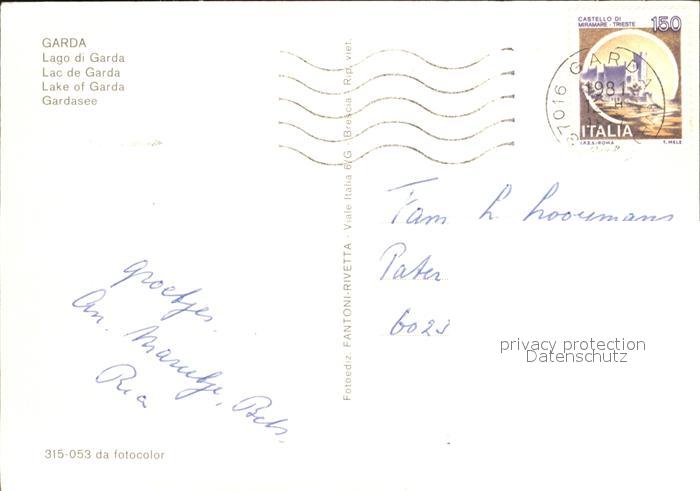 GARDA
Lago di Garda
Lac de Garda
Lake of Garda
Gardasee
CASTELLO DI
MIRAMARE - TRIESTE
150
ITALIA
I.P.Z.S.-ROMA
T. MELE
37016 GARDA
1981
Fam L. Looymans
Pater
6023
groetjes.
An. Marietje, Bets.
Ria
privacy protection
Datenschutz
Fotoediz. FANTONI-RIVETTA - Viale Italia 6/G - Brescia - Rip. viet.
315-053 da fotocolor